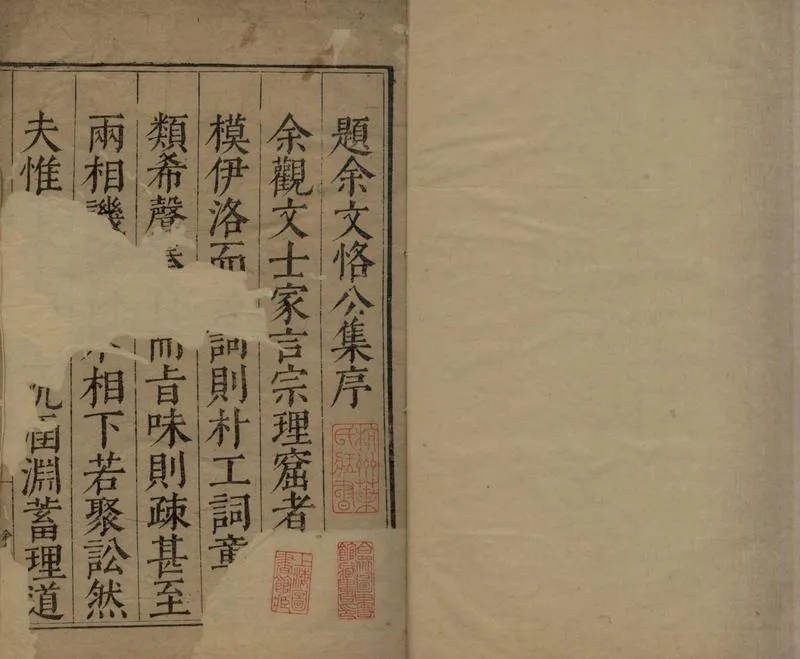 題余文恪公集序
余觀文士家言宗理窟者
模伊洛而詞則朴工詞章
類希聲 而旨味則疎甚至
兩相譏 不相下若聚訟然
夫惟 淵蓄理道
杭州葉氏藏書
上海圖書館藏